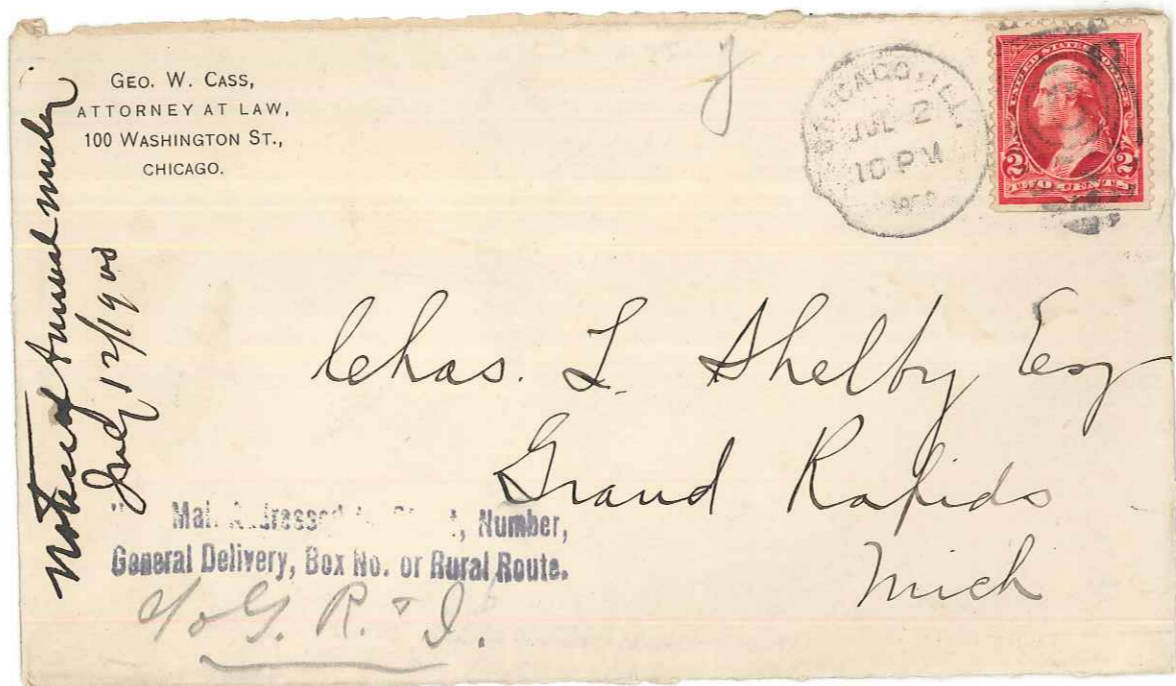 GEO. W. CASS,
ATTORNEY AT LAW,
100 WASHINGTON ST.,
CHICAGO.
Notice of Annual
July 12/1900
CHICAGO, ILL.
JUL 2
10 PM
1900
UNITED STATES POSTAGE
2 2
TWO CENTS
Chas. L. Shelby Esq
Grand Rapids
Mich
Mail Addressed to Street, Number,
General Delivery, Box No. or Rural Route.
c/o G. R. & I.